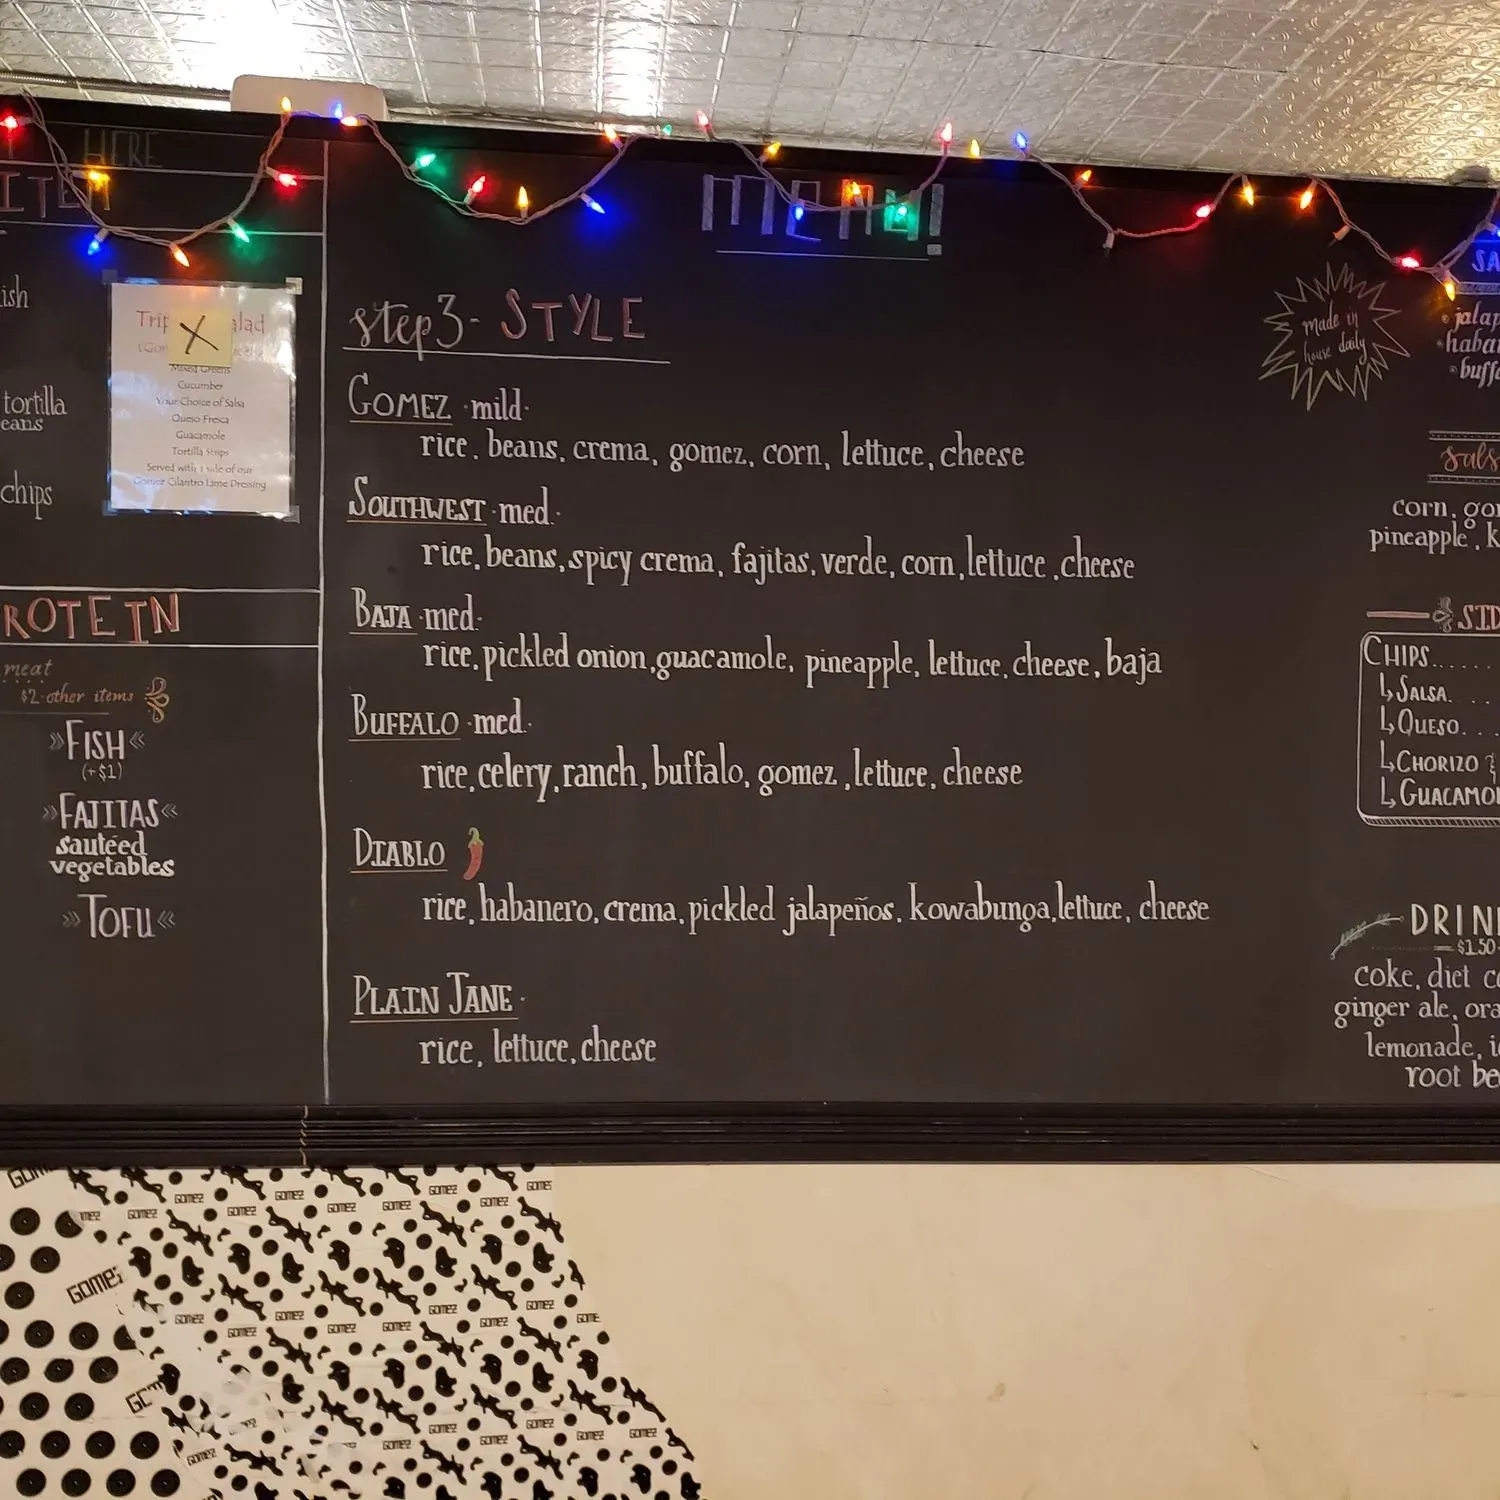 HERE
ITEM
ish
tortilla
eans
chips
Mixed Greens
Cucumber
Your Choice of Salsa
Queso Fresca
Guacamole
Tortilla Strips
Served with a side of our
Gomez Cilantro Lime Dressing
ROTEIN
meat
$2-other items
»FISH«
(+$1)
»FAJITAS«
sautéed
vegetables
»TOFU«
MENU!
step 3- STYLE
GOMEZ ·mild·
rice, beans, crema, gomez, corn, lettuce, cheese
SOUTHWEST ·med·
rice, beans, spicy crema, fajitas, verde, corn, lettuce, cheese
BAJA ·med·
rice, pickled onion, guacamole, pineapple, lettuce, cheese, baja
BUFFALO ·med·
rice, celery, ranch, buffalo, gomez, lettuce, cheese
DIABLO
rice, habanero, crema, pickled jalapeños, kowabunga, lettuce, cheese
PLAIN JANE·
rice, lettuce, cheese
made in
house daily
SA
·jalap
·haba
·buff
sals
corn, go
pineapple, k
SID
CHIPS......
↳SALSA. . .
↳QUESO. . .
↳CHORIZO &
↳GUACAMO
DRIN
$1.50
coke, diet c
ginger ale, ora
lemonade, i
root be
GOMEZ